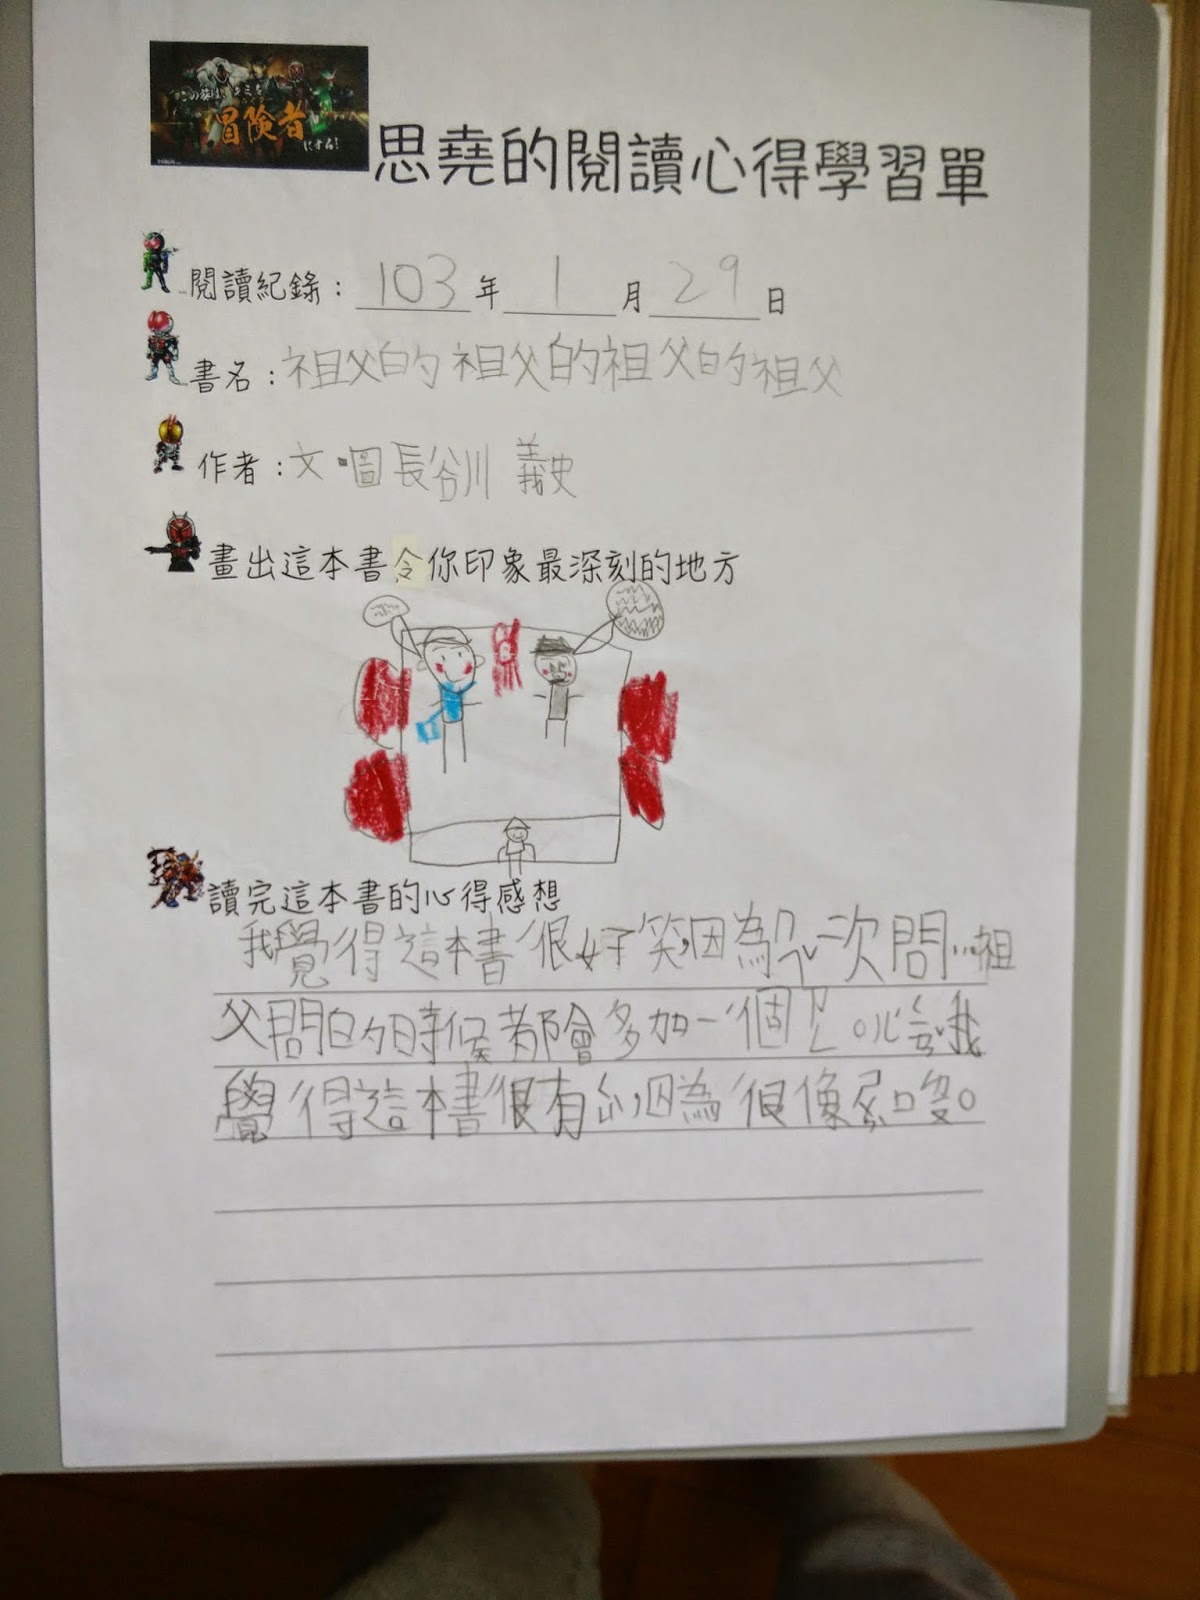 冒険者
にする!
思堯的閱讀心得學習單
閱讀紀錄：103年1月29日
書名：祖父的祖父的祖父的祖父
作者：文·圖長谷川 義史
畫出這本書令你印象最深刻的地方
讀完這本書的心得感想
我覺得這本書很好笑,因為ㄇㄟˇ次問…祖
父問的時候都會多加一個ㄗㄨ
覺得這本書很有 因為很像